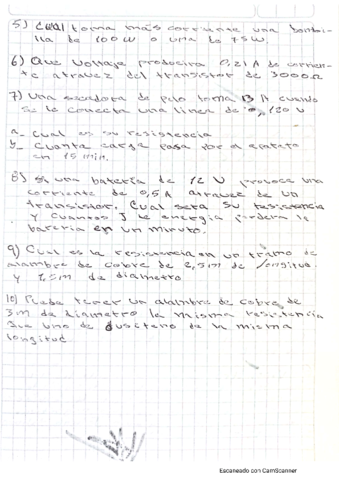 5) Cual toma más corriente una bombi-
lla de 100 W o una de 75 W.
6) Que voltaje producira 0,21 A de corrien-
te atravez del transistor de 3000 Ω
7) Una secadora de pelo toma 13 A cuando
se le conecta una linea de 120 V
a_ Cual es su resistencia
y_ Cuanta carga pasa por el aparato
en 15 min.
8) Si una bateria de 12 V provoca una
corriente de 0,5 A atravez de un
transistor. Cual sera su resistencia
y cuantos J de energia perdera la
bateria en un minuto.
9) Cual es la resistencia en un tramo de
alambre de cobre de 2,5 m de longitud.
y 1,5 m de diametro
10) Puede tener un alambre de cobre de
3 m de diametro la misma resistencia
que uno de la misma
longitud
Escaneado con CamScanner